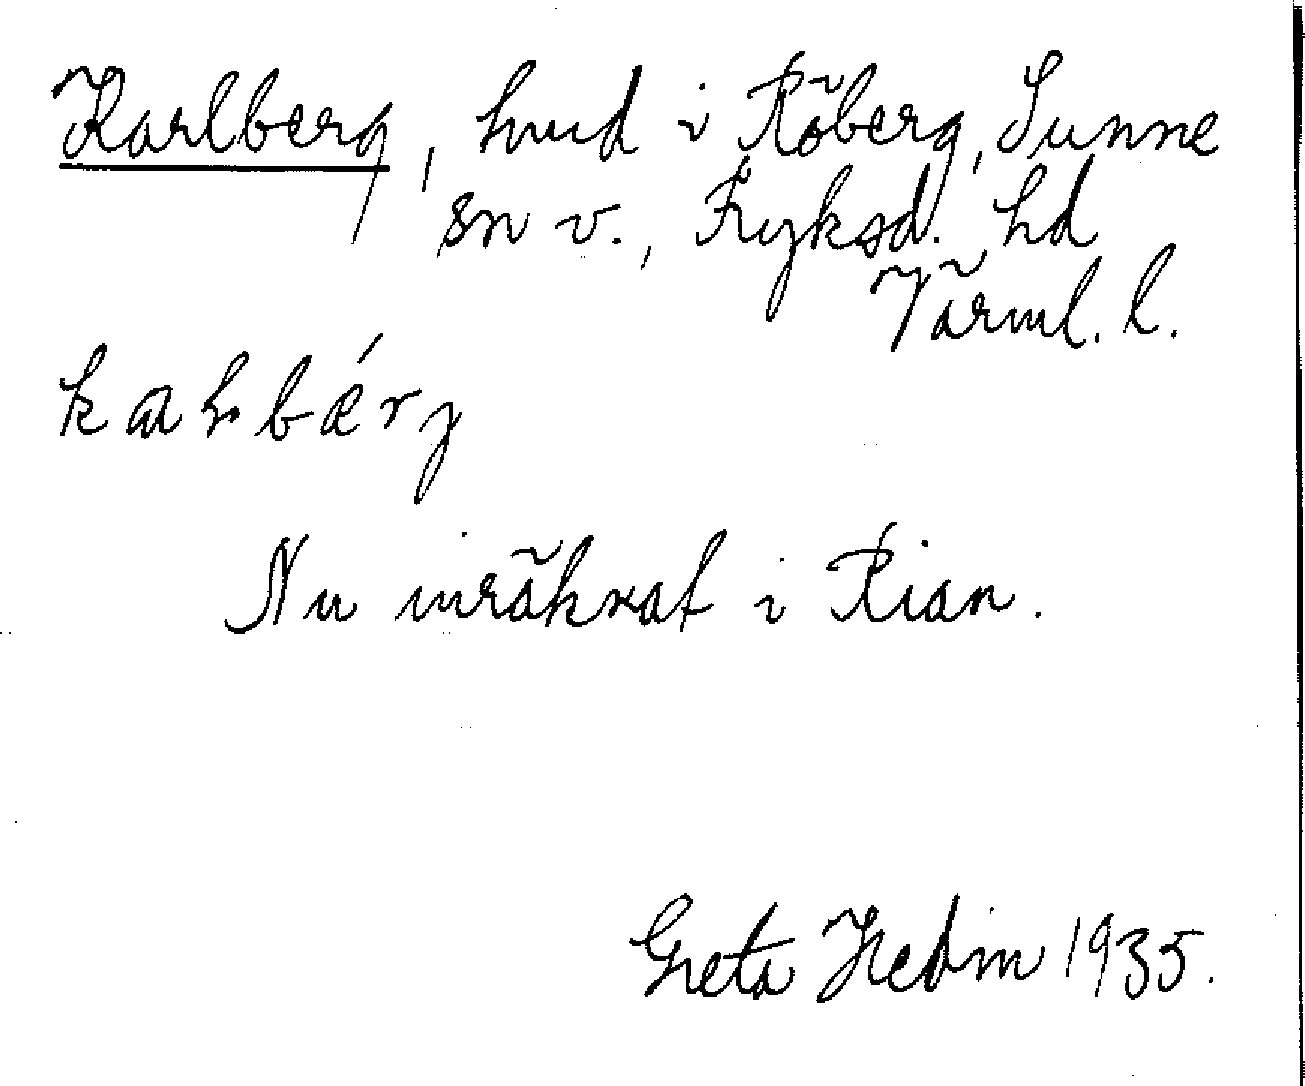 Karlberg, hmd i Röberg, Sunne
sn v., Fryksd. hd
Värml. l.
Nu inräknat i Rian.
Greta Hedin 1935.